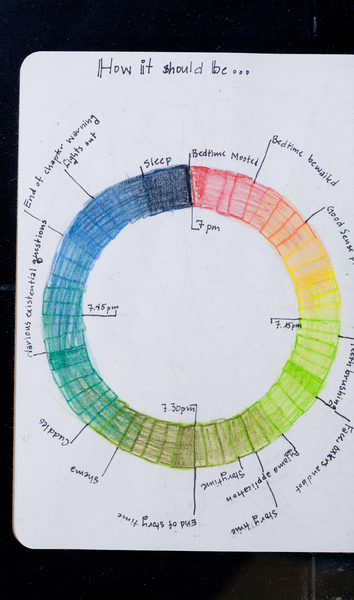 How it should be...
Bedtime Mooted
Bedtime bewailed
Good Sense
7 pm
7.15pm
Teeth brushing
Face, ears and bot
Pajama application
Storytime
Story time
7.30pm
End of story time
Shema
Cuddles
7.45pm
existential questions
End of chapter warning
Lights out
Sleep